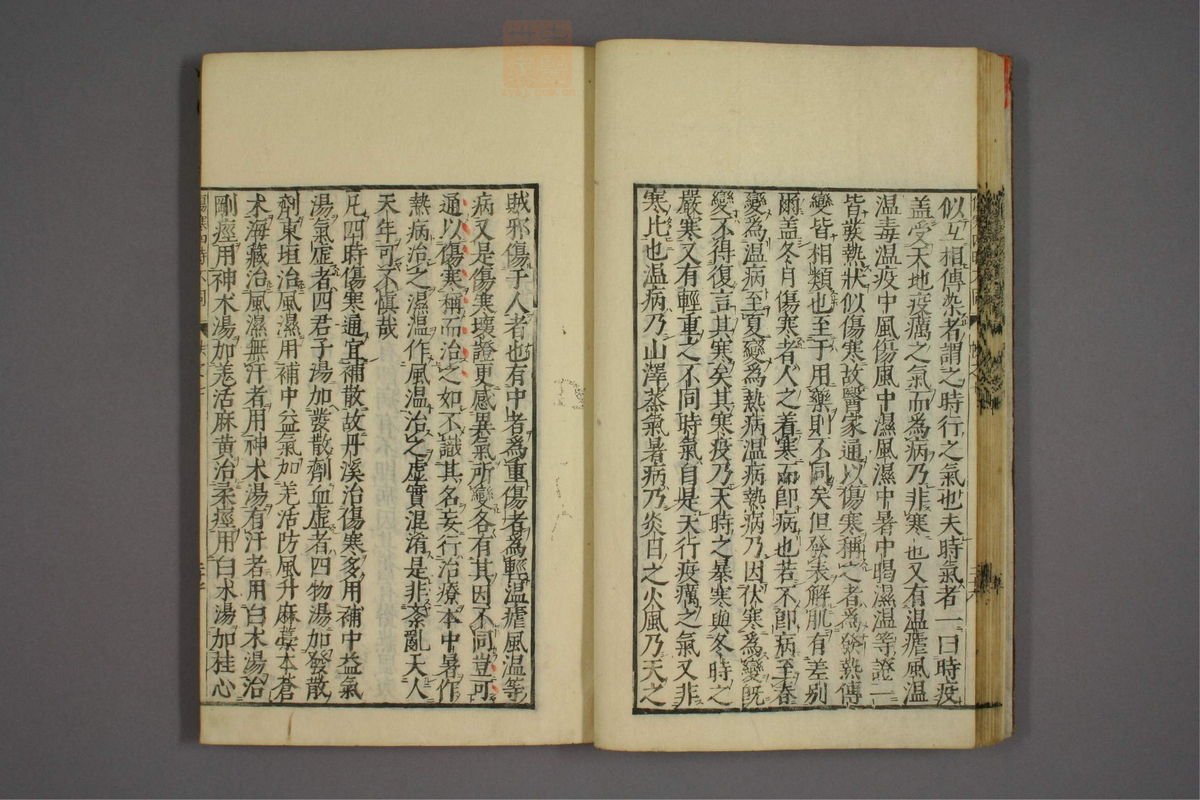 似互相傳染名謂之時行之氣也夫時氣者一曰時疫
盖受天地疫癘之氣而為病乃非寒也又有温瘧風温
温毒温疫中風傷風中濕風濕中暑中暍濕温等證一
皆發熱狀似傷寒故醫家通以傷寒稱之者為發熱傳
變皆相類也至于用藥則不同矣但發表解肌有差别
爾盖冬月傷寒者人之着寒而即病也若不即病至春
變為温病至夏變為熱病温病熱病乃因伏寒為變既
變不得復言其寒矣其寒疫乃天時之暴寒與冬時之
嚴寒又有輕重之不同時氣自是天行疫癘之氣又非
寒比也温病乃山澤蒸氣暑病乃炎日之火風乃天之
賊邪傷于人者也有中者為重傷者為輕温瘧風温等
病又是傷寒壞證更感異氣所變各有其因不同豈可
通以傷寒稱而治之如不識其名妄行治療本中暑作
熱病治之濕温作風温治之虚實混淆是非紊亂夭人
天年可不慎哉
凡四時傷寒通宜補散故丹溪治傷寒多用補中益氣
湯氣虚者四君子湯加發散劑血虚者四物湯加發散
劑東垣治風濕用補中益氣加羌活防風升麻藁本蒼
术海藏治風濕無汗者用神术湯有汗者用白术湯治
剛痙用神术湯加羌活麻黄治柔痙用白术湯加桂心
傷寒四時不同